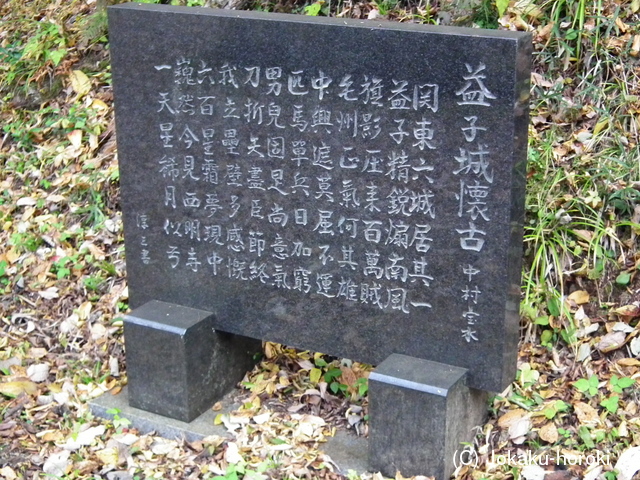 益子城懐古 中村宝水
関東六城居其一
益子精鋭煽南風
旗影圧来百萬賊
毛州正氣何其雄
中興遮莫屈不運
匹馬單兵日加窮
男兒固是尚意氣
刀折矢盡臣節終
我立壘壁多感慨
六百星霜夢現中
巍然今見西明寺
一天星稀月似弓